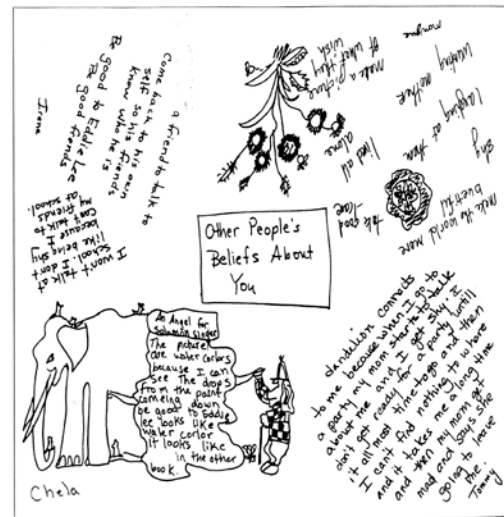 a friend to talk to
Come back to his own
self so his friends
know who he is
Be good to Eddie Lee
Be good friends
Irene
I won't talk at
school. I don't
like being shy
because I
can't talk to
my friends
at school.
make a picture
of what they
wish
lived all alone
wanting mother
laughing at them
shy
make the world more
talk good
-love
Other People's
Beliefs About
You
An Angel for
Solamon singer
The picture
are water corlors
because I can
see the drops
from the paint
comeing down
be good to Eddie
lee looks like
water corlor
it looks like
in the other
book.
Chela
dandelion connects
to me because when I go to
a party my mom starts to talk
about me and I get shy. I
don't get ready for a party untill
it all most time to go and then
I can't find nothing to whare
and it takes me a long time
and then my mom got
mad and says she
going to leave
Tommy